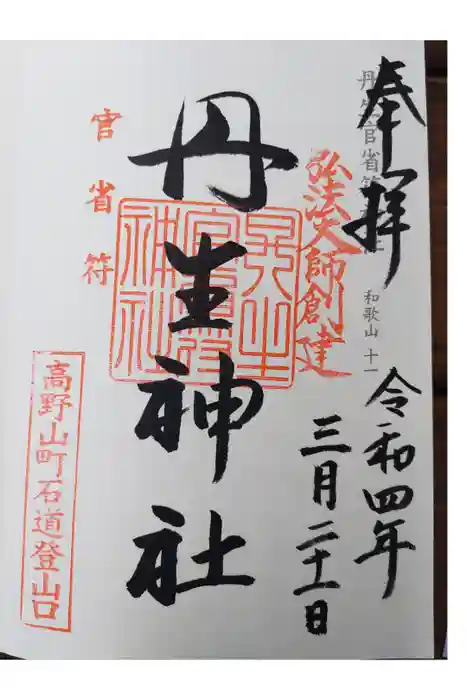 奉拝
丹生官省符神社 和歌山 十一
令和四年
弘法大師創建
三月二十一日
丹生神社
丹生
官省符
神社
官省符
高野山町石道登山口